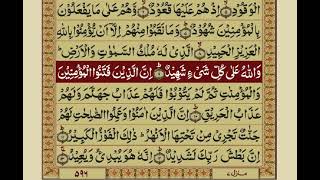 الْوَقُوْدِ ۙ اِذْ هُمْ عَلَيْهَا قُعُوْدٌ ۙ وَّهُمْ عَلٰى مَا يَفْعَلُوْنَ
بِالْمُؤْمِنِيْنَ شُهُوْدٌ ؕ وَمَا نَقَمُوْا مِنْهُمْ اِلَّاۤ اَنْ يُّؤْمِنُوْا بِاللّٰهِ
الْعَزِيْزِ الْحَمِيْدِ ۙ الَّذِيْ لَهٗ مُلْكُ السَّمٰوٰتِ وَالْاَرْضِ ؕ
وَاللّٰهُ عَلٰى كُلِّ شَيْءٍ شَهِيْدٌ ؕ اِنَّ الَّذِيْنَ فَتَنُوا الْمُؤْمِنِيْنَ
وَالْمُؤْمِنٰتِ ثُمَّ لَمْ يَتُوْبُوْا فَلَهُمْ عَذَابُ جَهَنَّمَ وَلَهُمْ
عَذَابُ الْحَرِيْقِ ؕ اِنَّ الَّذِيْنَ اٰمَنُوْا وَعَمِلُوا الصّٰلِحٰتِ لَهُمْ
جَنّٰتٌ تَجْرِيْ مِنْ تَحْتِهَا الْاَنْهٰرُ ؕ ذٰلِكَ الْفَوْزُ الْكَبِيْرُ ؕ
اِنَّ بَطْشَ رَبِّكَ لَشَدِيْدٌ ؕ اِنَّهٗ هُوَ يُبْدِئُ وَيُعِيْدُ ۚ
منزل ٧
٥٩٦